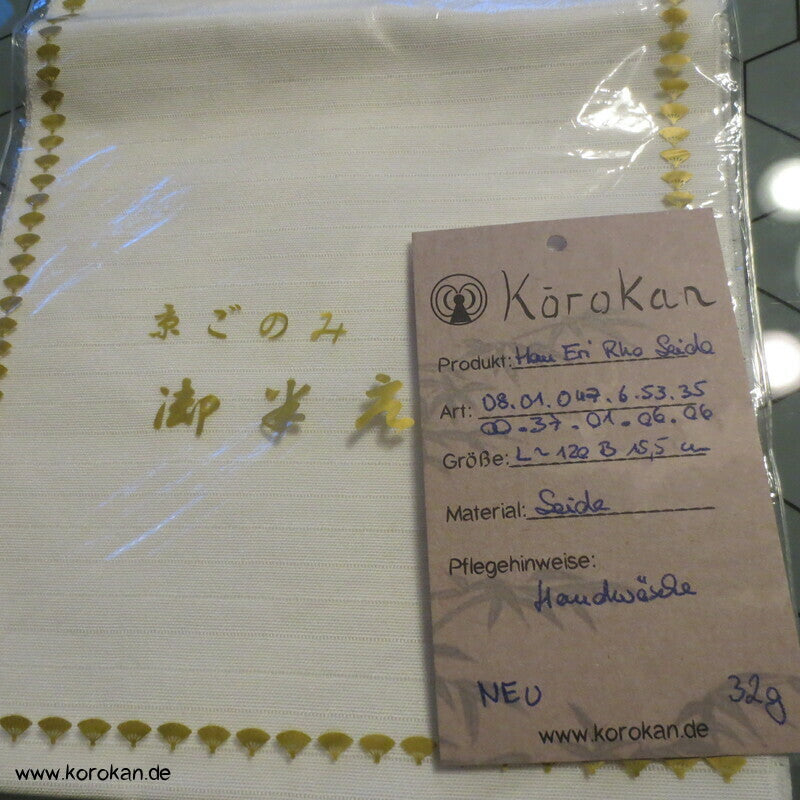 京ごのみ
御半衿
Kōrokan
Produkt: Han Eri Rho Seide
Art: 08.01.047.6.53.35
00.37.01.06.06
Größe: L~120 B 15,5 cm
Material: Seide
Pflegehinweise:
Handwäsche
NEU 32g
www.korokan.de
www.korokan.de